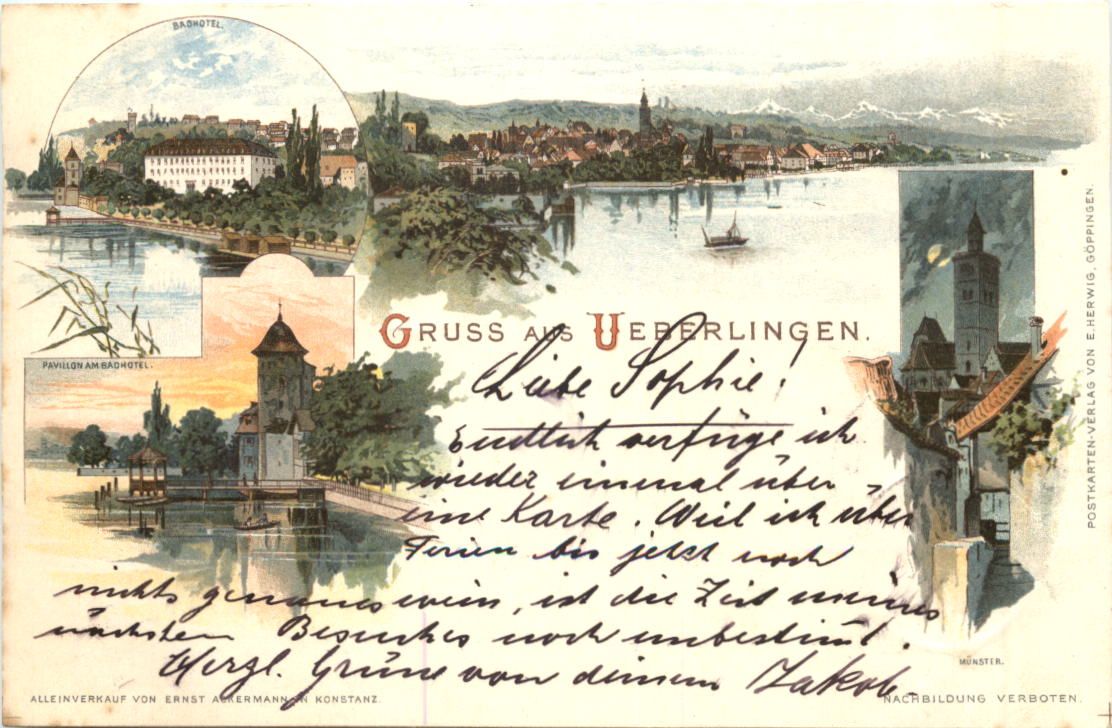 BADHOTEL.
GRUSS AUS UEBERLINGEN.
PAVILLON AM BADHOTEL.
Liebe Sophie!
Endlich verfüge ich
wieder einmal über
eine Karte. Weil ich über
Ferien bis jetzt noch
nichts genaues weis, ist die Zeit meines
nächsten Besuches noch unbestimt.
Herzl. Grüße von deinem Jakob.
MÜNSTER.
ALLEINVERKAUF VON ERNST ACKERMANN IN KONSTANZ.
NACHBILDUNG VERBOTEN.
POSTKARTEN-VERLAG VON E. HERWIG, GÖPPINGEN.